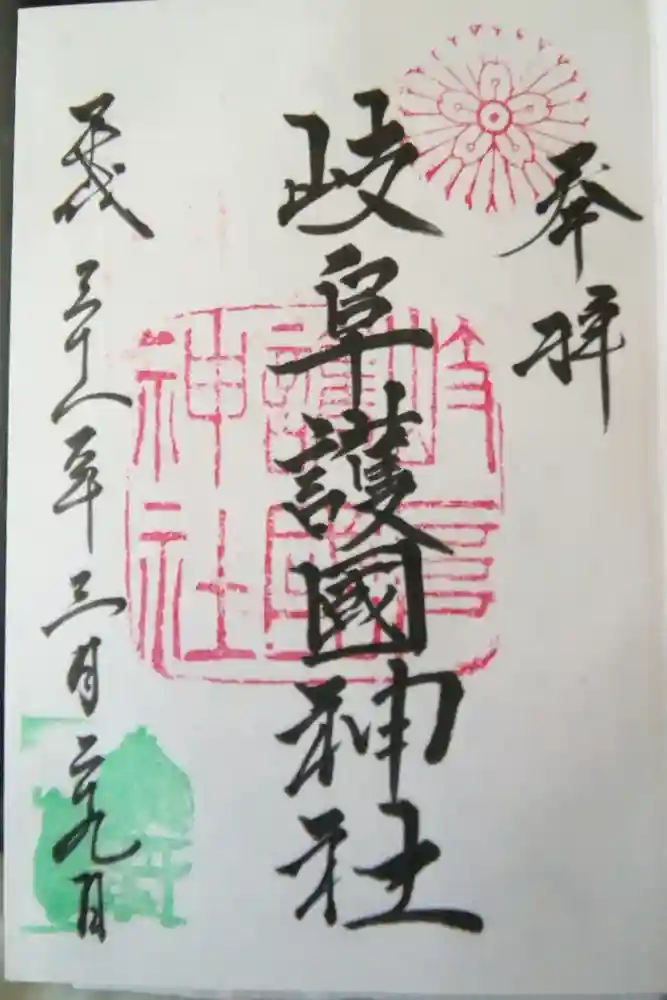 奉拝
岐阜護國神社
平成二十八年三月二十九日
岐阜
護國
神社